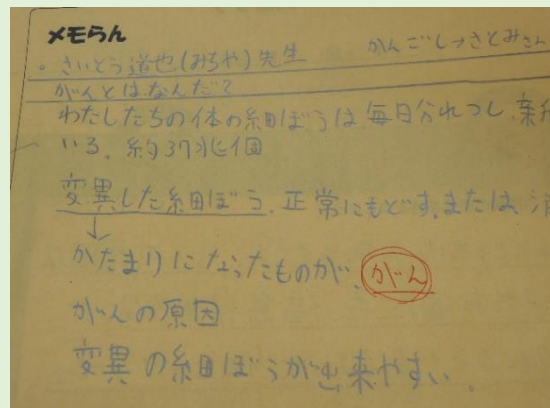 メモらん
がんごし→さとみさん
。さいとう道也(みちや)先生
がんとはなんだ?
わたしたちの体の細ぼうは毎日分れつし、新
いる。約37兆個
変異した細ぼう、正常にもどす。または、消
↓
かたまりになったものが、がん
がんの原因
変異の細ぼうが出来やすい。